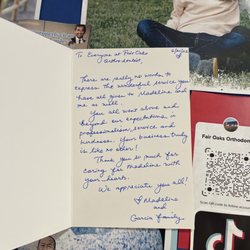 To Everyone at Fair Oaks
Orthodontist,
There are really no words to
express the wonderful service you
have all given to Madeline and
me as well.
You all went above and
beyond our expectations in
professionalism, service and
kindness. Your business truly
is like no other!
Thank you so much for
caring for Madeline with
your hearts.
We appreciate you all!
Madeline
and
Garcia Family
Fair Oaks Orthodon